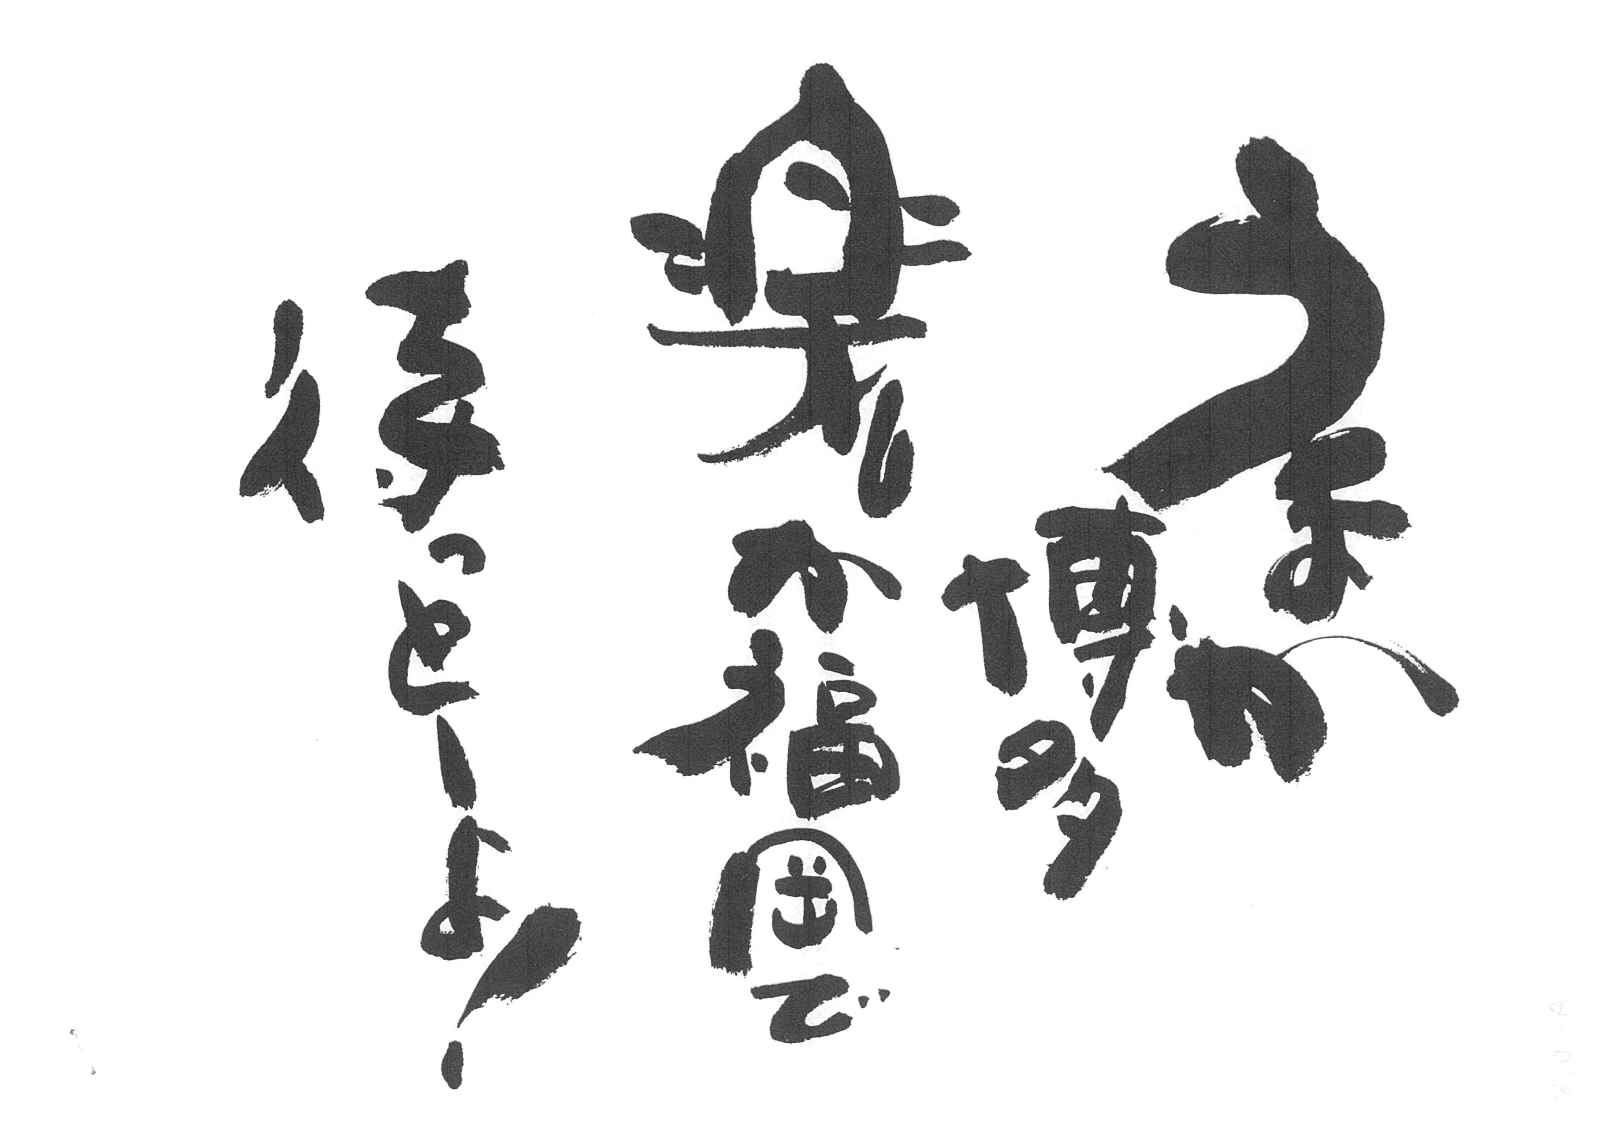 うまか博多
楽しか福岡で
待っとーよ!